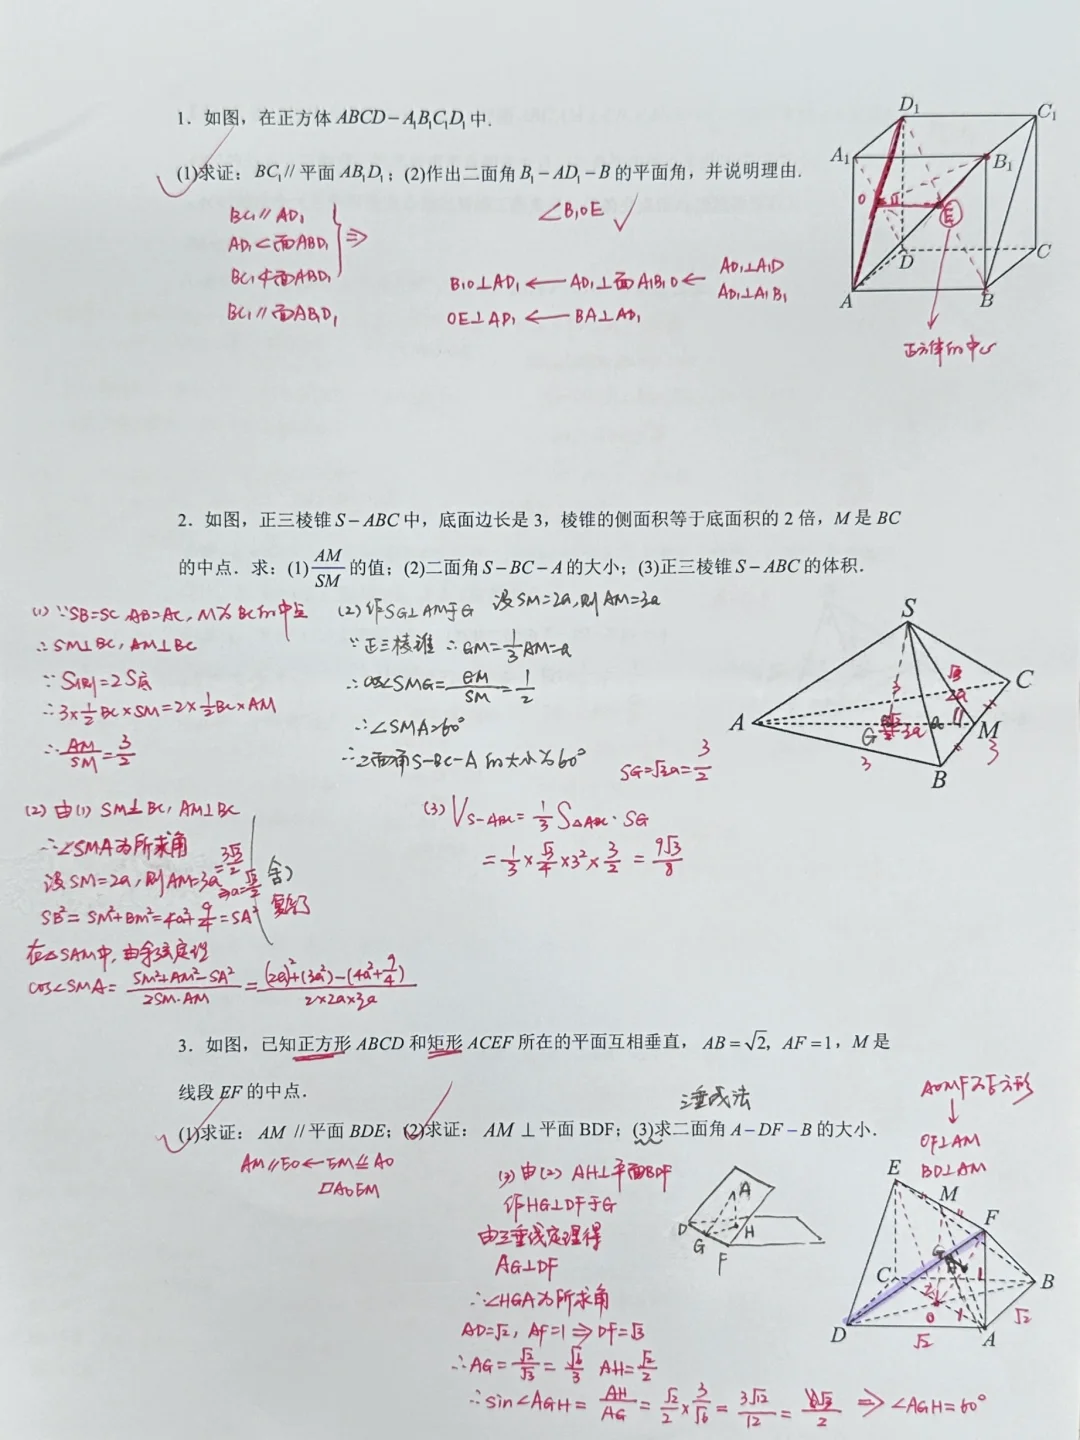 1．如图，在正方体 ABCD－A₁B₁C₁D₁ 中．
(1)求证：BC₁∥平面 AB₁D₁；(2)作出二面角 B₁－AD₁－B 的平面角，并说明理由.
BC₁∥AD₁
AD₁⊂面ABD₁
BC₁⊄面ABD₁
⇒
BC₁∥面AB₁D₁
∠B₁OE
B₁O⊥AD₁ ← AD₁⊥面A₁B₁O ← AD₁⊥A₁D
AD₁⊥A₁B₁
OE⊥AD₁ ← BA⊥AD₁
D₁
C₁
A₁
B₁
O
E
D
C
A
B
正方体的中心
2．如图，正三棱锥 S－ABC 中，底面边长是 3，棱锥的侧面积等于底面积的 2 倍，M 是 BC
的中点．求：(1) AM/SM 的值；(2)二面角 S－BC－A 的大小；(3)正三棱锥 S－ABC 的体积．
(1) ∵SB=SC, AB=AC, M为BC的中点
∴SM⊥BC, AM⊥BC
∵S侧=2S底
∴3×½BC×SM=2×½BC×AM
∴AM/SM=3/2
(2) 作SG⊥AM于G 设SM=2a,则AM=3a
∵正三棱锥 ∴GM=⅓AM=a
∴cos∠SMG=GM/SM=1/2
∴∠SMA=60°
∴二面角S-BC-A的大小为60°
SG=√3a=3/2
S
C
A
G
M
B
3
3
3
2a
3a
a
√3
(2) 由(1) SM⊥BC, AM⊥BC
∴∠SMA为所求角
设SM=2a, 则AM=3a=3√3/2
⇒a=√3/2
SB²=SM²+BM²=4a²+9/4=SA²
舍）
复杂了
在△SAM中, 由余弦定理
cos∠SMA=(SM²+AM²-SA²)/(2SM·AM)=((2a)²+(3a²)-(4a²+9/4))/(2×2a×3a)
(3) V_{S-ABC}=⅓S△ABC·SG
=⅓×√3/4×3²×3/2=9√3/8
3．如图，已知正方形 ABCD 和矩形 ACEF 所在的平面互相垂直，AB＝√2，AF＝1，M 是
线段 EF 的中点．
三垂线法
(1)求证：AM∥平面 BDE；(2)求证：AM⊥平面 BDF；(3)求二面角 A－DF－B 的大小．
AM∥EO ← EM⫽AO
▱AOEM
AOMF为正方形
↓
OF⊥AM
BD⊥AM
(3) 由(2) AH⊥平面BDF
作HG⊥DF于G
由三垂线定理得
AG⊥DF
∴∠HGA为所求角
AD=√2, AF=1⇒DF=√3
∴AG=√2/√3=√6/3 AH=√2/2
∴sin∠AGH=AH/AG=√2/2×3/√6=3√12/12=√3/2 ⇒ ∠AGH=60°
A
D
G
H
F
E
M
F
G
H
C
B
D
O
A
1
1
√2
√2